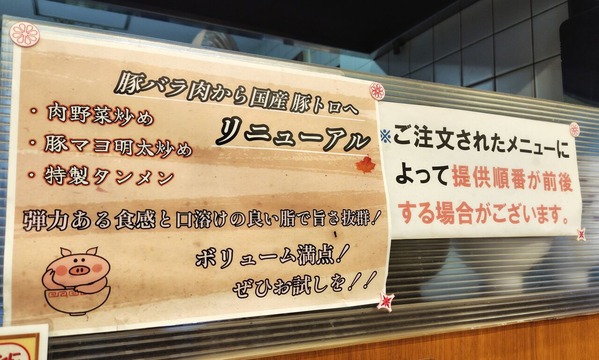 豚バラ肉から国産豚トロへ
リニューアル
・肉野菜炒め
・豚マヨ明太炒め
・特製タンメン
弾力ある食感と口溶けの良い脂で旨さ抜群！
ボリューム満点！
ぜひお試しを！！
※ご注文されたメニューに
よって提供順番が前後
する場合がございます。